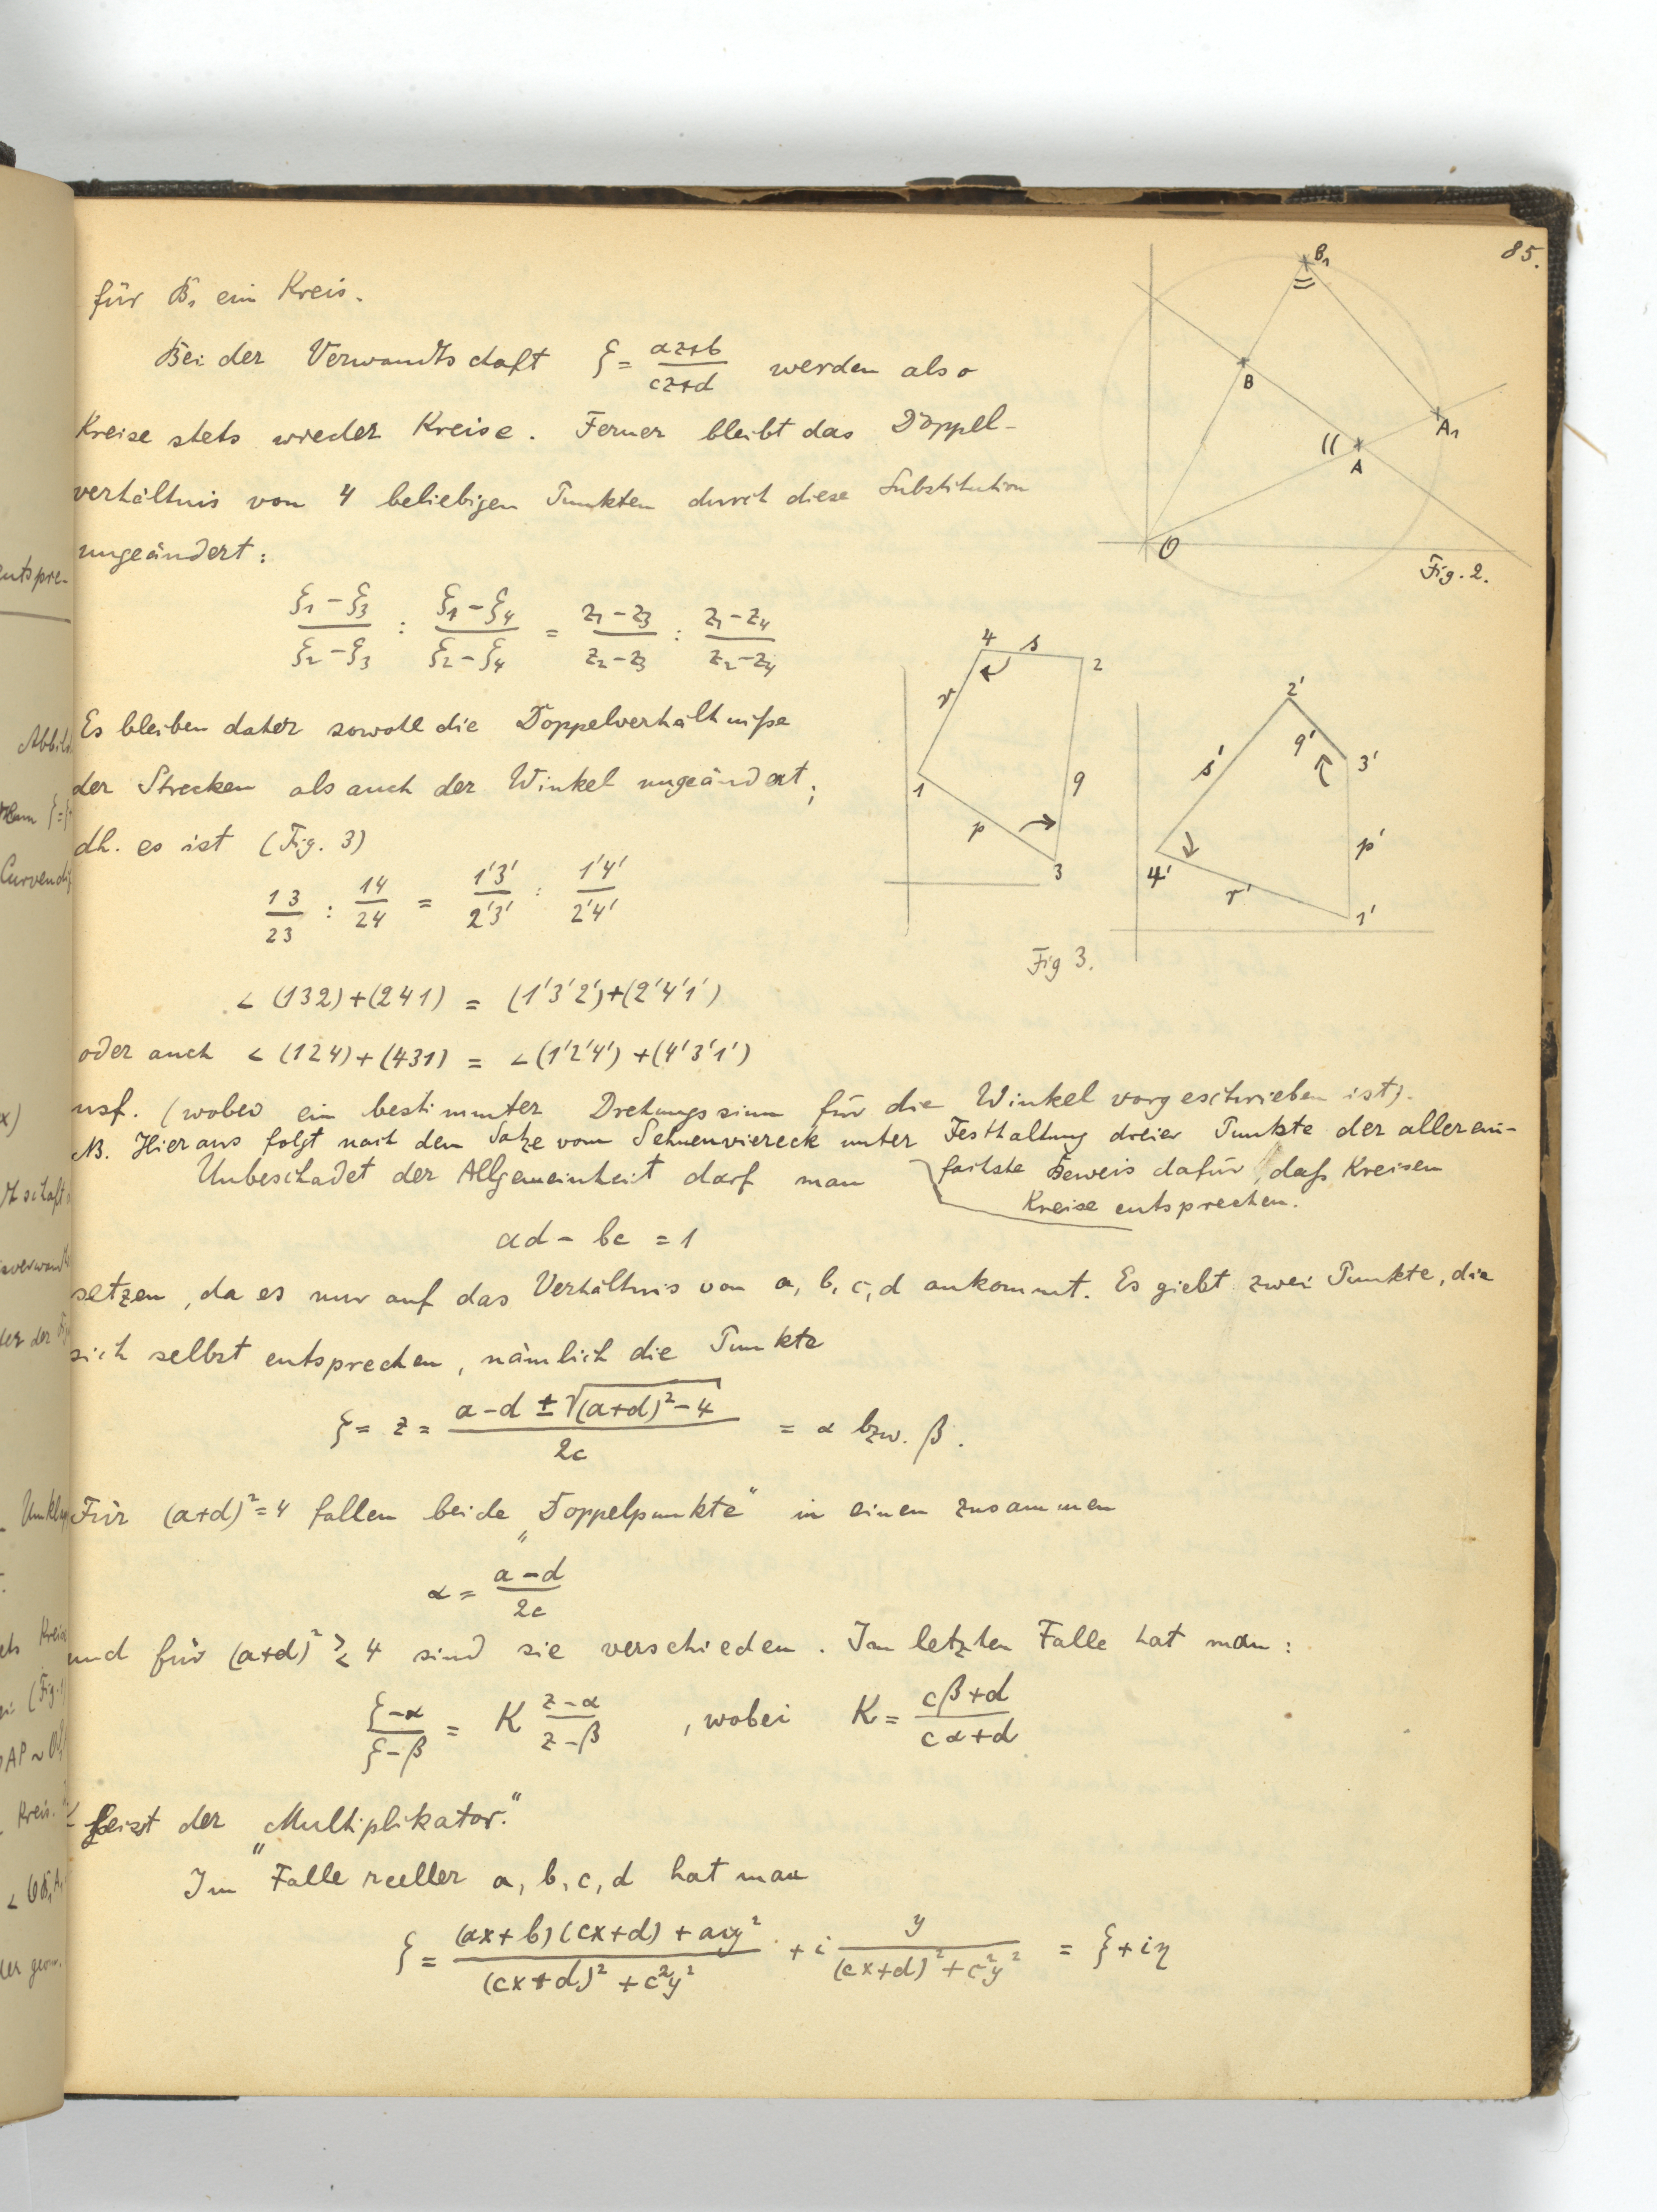 85.
für B₁ ein Kreis.
Bei der Verwandtschaft ζ = (az+b)/(cz+d) werden also
Kreise stets wieder Kreise. Ferner bleibt das Doppel-
verhältnis von 4 beliebigen Punkten durch diese Substitution
ungeändert:
(ζ₁-ζ₃)/(ζ₂-ζ₃) : (ζ₁-ζ₄)/(ζ₂-ζ₄) = (z₁-z₃)/(z₂-z₃) : (z₁-z₄)/(z₂-z₄)
Es bleiben daher sowohl die Doppelverhältniße
der Strecken als auch der Winkel ungeändert;
dh. es ist (Fig. 3)
13/23 : 14/24 = 1'3'/2'3' : 1'4'/2'4'
∠ (132)+(241) = (1'3'2')+(2'4'1')
oder auch ∠ (124)+(431) = ∠(1'2'4')+(4'3'1')
usf. (wobei ein bestimmter Drehungssinn für die Winkel vorgeschrieben ist).
NB. Hieraus folgt nach dem Satze vom Sehnenviereck unter Festhaltung dreier Punkte der allerein-
fachste Beweis dafür, daß Kreisen
Kreise entsprechen.
Unbeschadet der Allgemeinheit darf man
ad - bc = 1
setzen, da es nur auf das Verhältnis von a, b, c, d ankommt. Es giebt zwei Punkte, die
sich selbst entsprechen, nämlich die Punkte
ζ = z = (a-d ± √((a+d)²-4))/2c = α bzw. β.
Für (a+d)²=4 fallen beide „Doppelpunkte“ in einen zusammen
α = (a-d)/2c
und für (a+d)² ≷ 4 sind sie verschieden. Im letzten Falle hat man:
(ζ-α)/(ζ-β) = K (z-α)/(z-β), wobei K = (cβ+d)/(cα+d)
heisst der „Multiplikator.“
Im Falle reeller a, b, c, d hat man
ζ = ((ax+b)(cx+d)+acy²)/((cx+d)²+c²y²) + i y/((cx+d)²+c²y²) = ξ+iη
B₁
B
A₁
A
O
Fig. 2.
4
s
2
r
1
q
p
3
2'
q'
3'
s'
p'
4'
r'
1'
Fig 3.